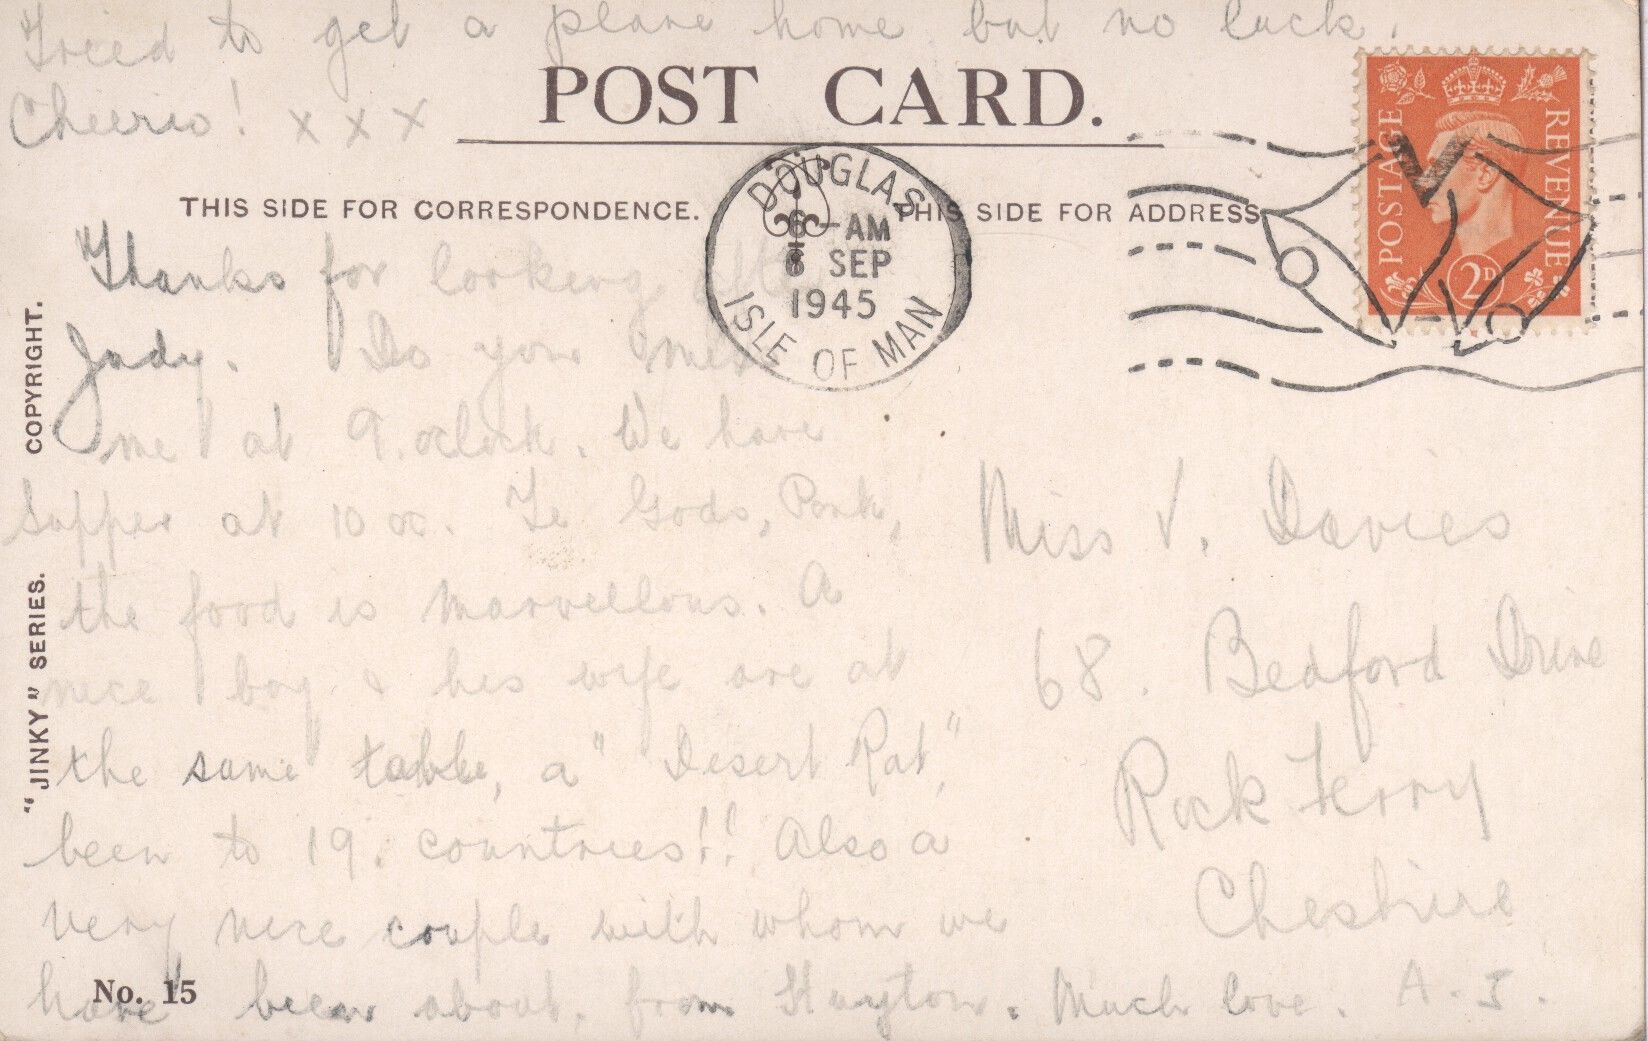 Tried to get a plane home but no luck.
Cheerio! x x x
POST CARD.
THIS SIDE FOR CORRESPONDENCE.
THIS SIDE FOR ADDRESS
DOUGLAS
6 - AM
8 SEP
1945
ISLE OF MAN
POSTAGE
REVENUE
2D
V
Thanks for looking after
Judy. Do you meet
me at 9. oclock. We have
Supper at 10 oc. Ye Gods,
the food is marvellous. A
nice boy & his wife are at
the same table, a "Desert Rat,"
been to 19. countries!! Also a
very nice couple with whom we
have been about, from Huyton. Much love. A. J.
Miss V. Davies
68. Bedford Drive
Rock Ferry
Cheshire
"JINKY" SERIES. COPYRIGHT.
No. 15